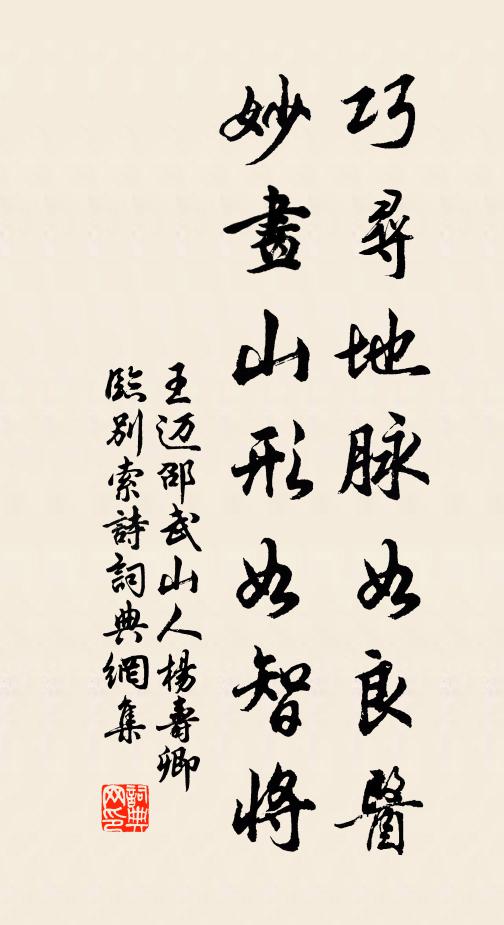 巧尋地脉如良醫
妙畫山形如智將
王迈邵武山人楊壽卿
臨别索詩詞典網集
詞典
网印